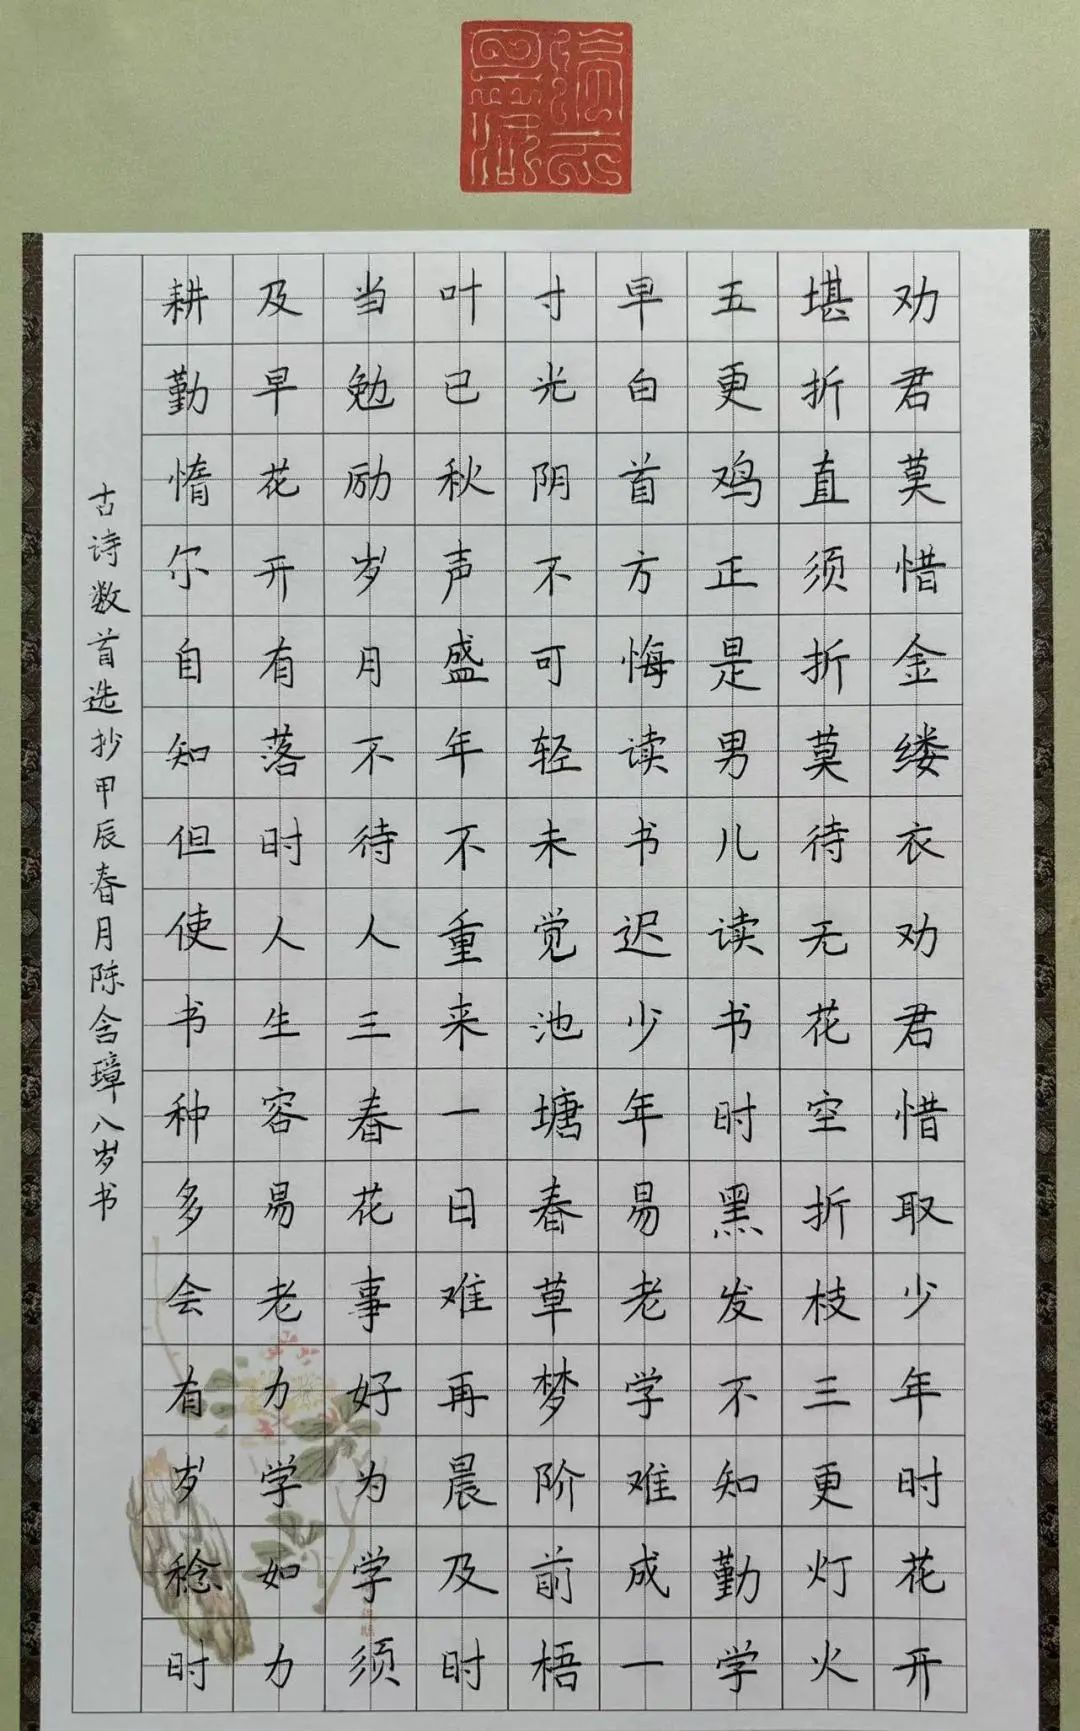 劝君莫惜金缕衣劝君惜取少年时花开
堪折直须折莫待无花空折枝三更灯火
五更鸡正是男儿读书时黑发不知勤学
早白首方悔读书迟少年易老学难成一
寸光阴不可轻未觉池塘春草梦阶前梧
叶已秋声盛年不重来一日难再晨及时
当勉励岁月不待人三春花事好为学须
及早花开有落时人生容易老力学如力
耕勤惰尔自知但使书种多会有岁稔时
古诗数首选抄甲辰春月陈含璋八岁书